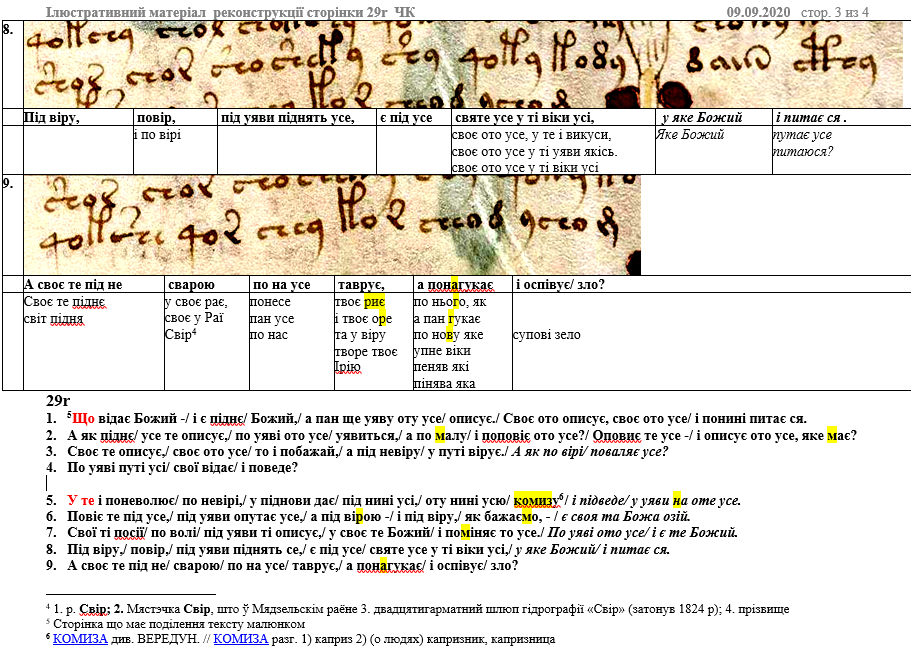 Ілюстративний матеріал реконструкції сторінки 29r ЧК 09.09.2020 стор. 3 из 4
8.
Під віру, повір, під уяви піднять усе, є під усе святе усе у ті віки усі, у яке Божий і питає ся .
і по вірі своє ото усе, у те і викуси, Яке Божий путає усе
своє ото усе у ті уяви якісь. питаюся?
своє ото усе у ті віки усі
9.
А своє те під не сварою по на усе таврує, а понагукає і оспівує/ зло?
Своє те піднє у своє рає, понесе твоє риє по нього, як
світ підня своє у Раї пан усе і твоє оре а пан гукає
Свір⁴ по нас та у віру по нову яке супові зело
творе твоє упне віки
Ірію пеняв які
пінява яка
29r
1. ⁵Що відає Божий -/ і є піднє/ Божий,/ а пан ще уяву оту усе/ описує./ Своє ото описує, своє ото усе/ і понині питає ся.
2. А як піднє/ усе те описує,/ по уяві ото усе/ уявиться,/ а по малу/ і поповіє ото усе?/ Оповиє те усе -/ і описує ото усе, яке має?
3. Своє те описує,/ своє ото усе/ то і побажай,/ а під невіру/ у путі вірує./ А як по вірі/ поваляє усе?
4. По уяві путі усі/ свої відає/ і поведе?
5. У те і поневолює/ по невірі,/ у піднови дає/ під нині усі,/ оту нині усю/ комизу⁶/ і підведе/ у уяви на оте усе.
6. Повіє те під усе,/ під уяви опутає усе,/ а під вірою -/ і під віру,/ як бажаємо, - / є своя та Божа озій.
7. Свої ті посії/ по волі/ під уяви ті описує,/ у своє те Божий/ і поміняє то усе./ По уяві ото усе/ і є те Божий.
8. Під віру,/ повір,/ під уяви піднять се,/ є під усе/ святе усе у ті віки усі,/ у яке Божий/ і питає ся.
9. А своє те під не/ сварою/ по на усе/ таврує,/ а понагукає/ і оспівує/ зло?
⁴ 1. р. Свір; 2. Мястэчка Свір, што ў Мядзельскім раёне 3. двадцятигарматний шлюп гідрографії «Свір» (затонув 1824 р); 4. прізвище
⁵ Сторінка що має поділення тексту малюнком
⁶ КОМИЗА див. ВЕРЕДУН. // КОМИЗА разг. 1) каприз 2) (о людях) капризник, капризница